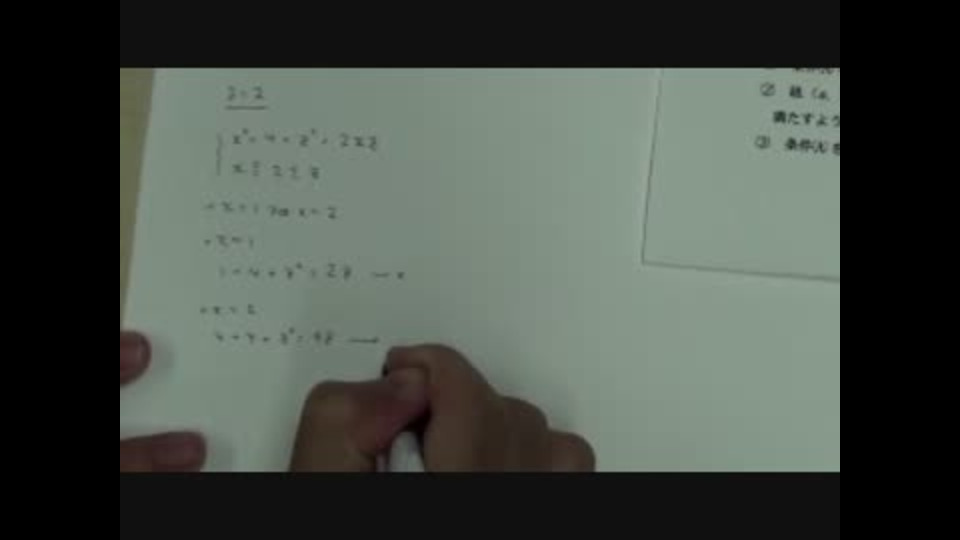 y=2
x²+4+z²=2xz
x≦2≦z
x=1 or x=2
x=1
1+4+z²=2z → x
x=2
4+4+z²=4z →
② 組(a,
満たすよう
③ 条件(A)を